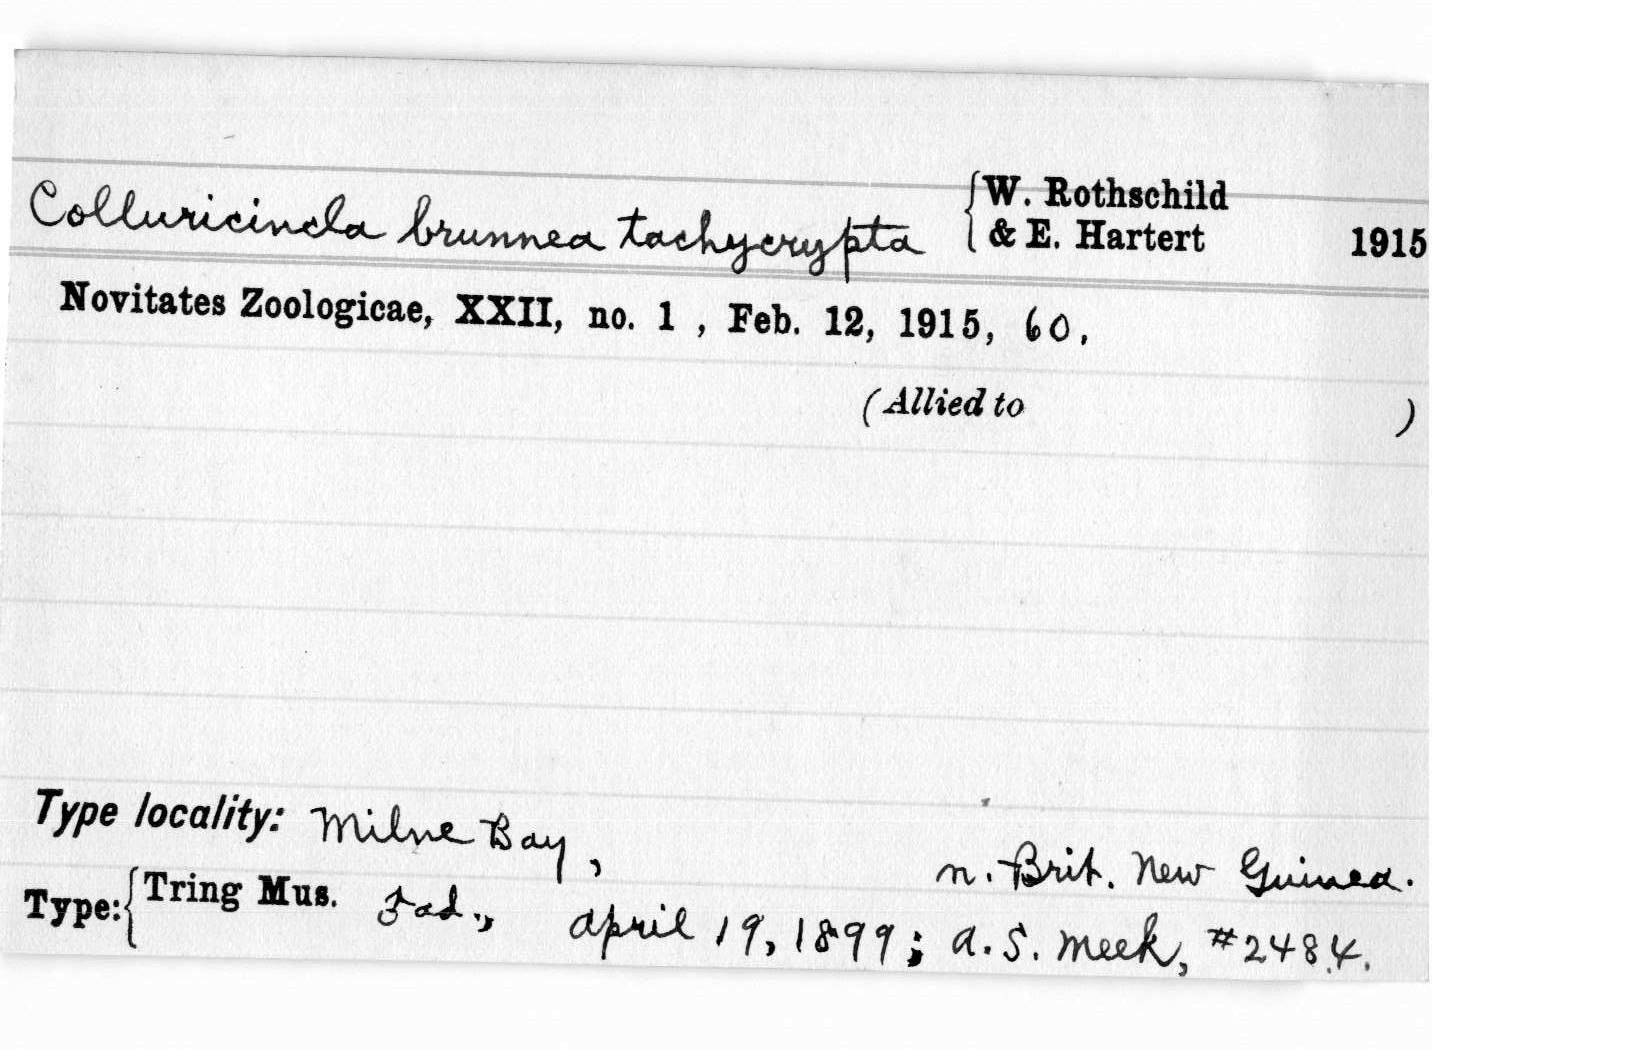 Colluricincla brunnea tachycrypta { W. Rothschild
& E. Hartert 1915
Novitates Zoologicae, XXII, no. 1 , Feb. 12, 1915, 60.
(Allied to )
Type locality: Milne Bay, n. Brit. New Guinea.
Type: { Tring Mus. ad., April 19, 1899; A. S. Meek, #2484.